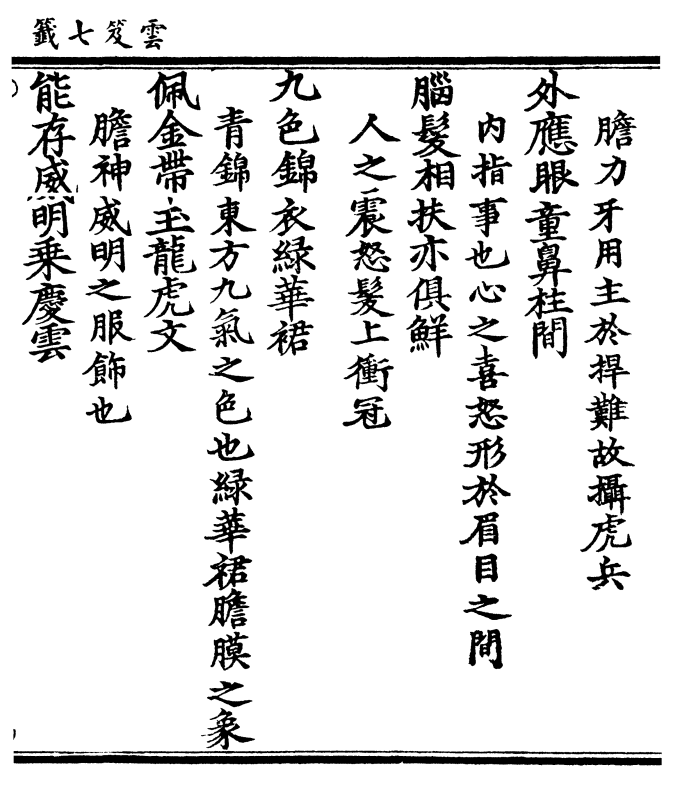 雲笈七籤
膽力牙用主於捍難故攝虎兵
外應眼童鼻柱間
內指事也心之喜怒形於眉目之間
腦髮相扶亦俱鮮
人之震怒髮上衝冠
九色錦衣綠華裙
青錦東方九氣之色也綠華裙膽膜之象
佩金帶玉龍虎文
膽神威明之服飾也
能存威明乘慶雲